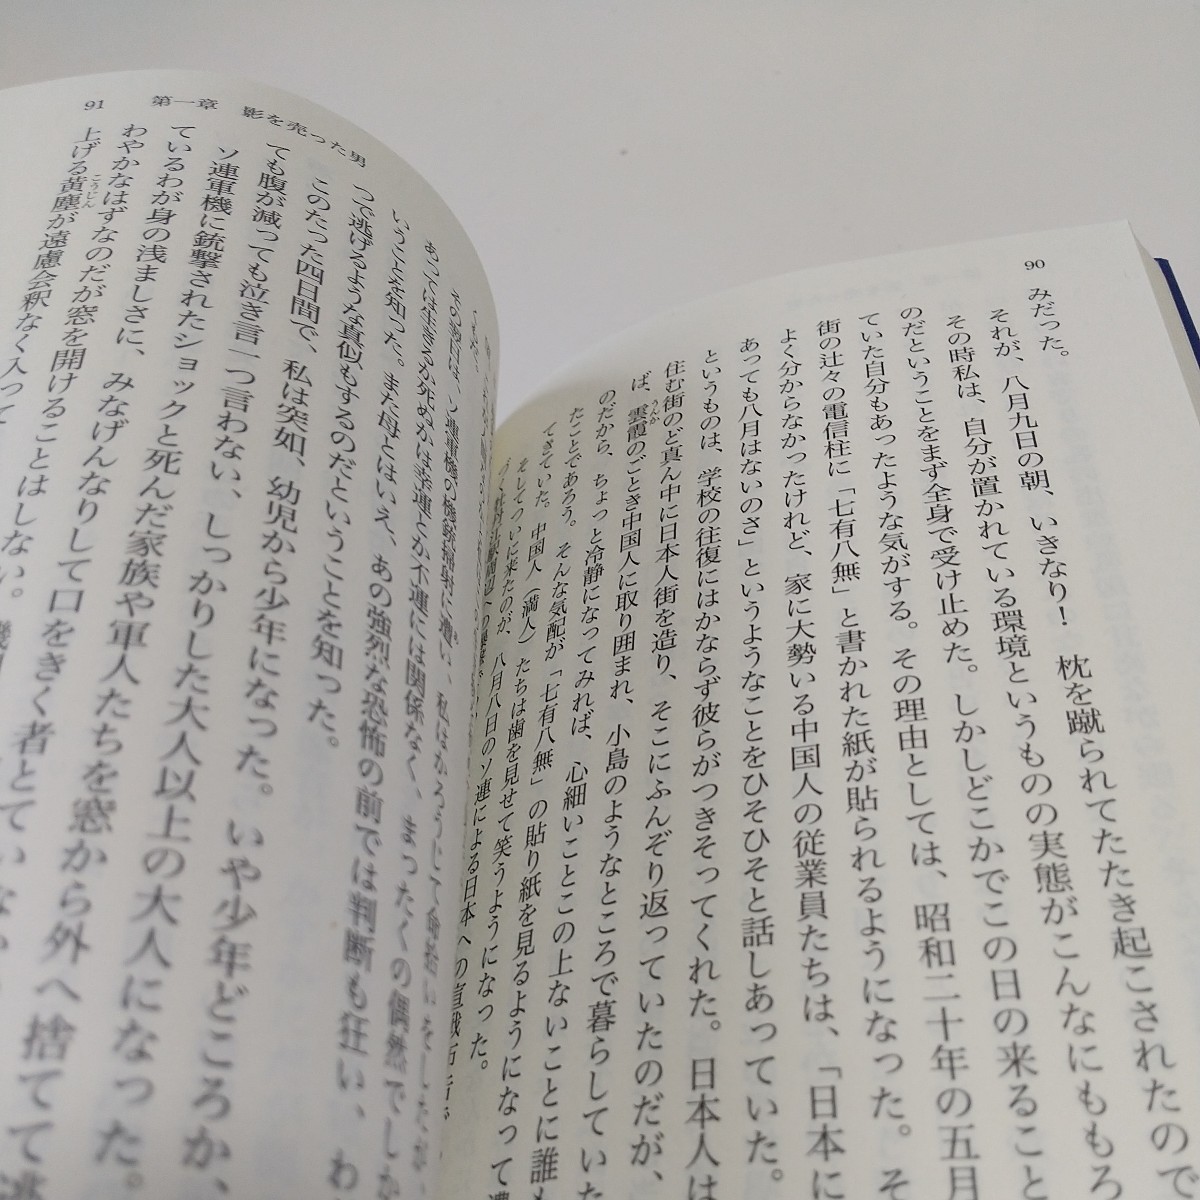 90
みだった。
それが、八月九日の朝、いきなり！　枕を蹴られてたたき起こされたので
その時私は、自分が置かれている環境というものの実態がこんなにももろ
のだということをまず全身で受け止めた。しかしどこかでこの日の来ること
ていた自分もあったような気がする。その理由としては、昭和二十年の五月
街の辻々の電信柱に「七有八無」と書かれた紙が貼られるようになった。そ
よく分からなかったけれど、家に大勢いる中国人の従業員たちは、「日本に
あっても八月はないのさ」というようなことをひそひそと話しあっていた。
というものは、学校の往復にはかならず彼らがつきそってくれた。日本人は
住む街のど真ん中に日本人街を造り、そこにふんぞり返っていたのだが、
ば、雲霞のごとき中国人に取り囲まれ、小島のようなところで暮らしていた
うんか
のだから、ちょっと冷静になってみれば、心細いことこの上ないことに誰も
たことであろう。そんな気配が「七有八無」の貼り紙を見るようになって
てきていた。中国人（満人）たちは歯を見せて笑うようになった。
そしてついに来たのが、八月八日のソ連による日本への宣戦布告
91
第一章　影を売った男
その翌日は、ソ連軍機の機銃掃射に遭い、私はかろうじて命拾いをしたが、
あっては生きるか死ぬかは幸運とか不運には関係なく、まったくの偶然でしか
いうことを知った。また母とはいえ、あの強烈な恐怖の前では判断も狂い、わ
つで逃げるような真似もするのだということを知った。
このたった四日間で、私は突如、幼児から少年になった。いや少年どころか、
ても腹が減っても泣き言一つ言わない、しっかりした大人以上の大人になった。
ソ連軍機に銃撃されたショックと死んだ家族や軍人たちを窓から外へ捨てて逃
ているわが身の浅ましさに、みなげんなりして口をきく者とていない
わやかなはずなのだが窓を開けることはしない。
上げる黄塵が遠慮会釈なく入って
こうじん